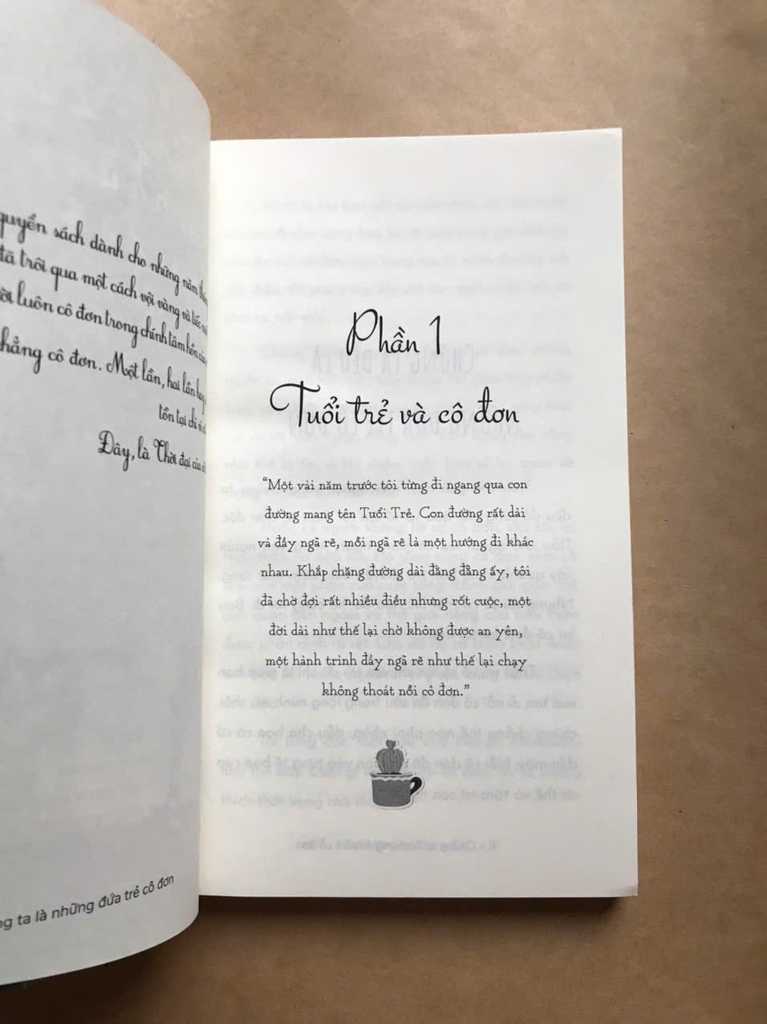 quyển sách dành cho những năm
đã trôi qua một cách vội vàng và
luôn cô đơn trong chính tâm hồn
chẳng cô đơn. Một lần, hai lần
tồn tại chỉ
Đây, là Thời đại của
ta là những đứa trẻ cô đơn
Phần 1
Tuổi trẻ và cô đơn
“Một vài năm trước tôi từng đi ngang qua con
đường mang tên Tuổi Trẻ. Con đường rất dài
và đầy ngã rẽ, mỗi ngã rẽ là một hướng đi khác
nhau. Khắp chặng đường dài đằng đẵng ấy, tôi
đã chờ đợi rất nhiều điều nhưng rốt cuộc, một
đời dài như thế lại chờ không được an yên,
một hành trình đầy ngã rẽ như thế lại chạy
không thoát nổi cô đơn.”